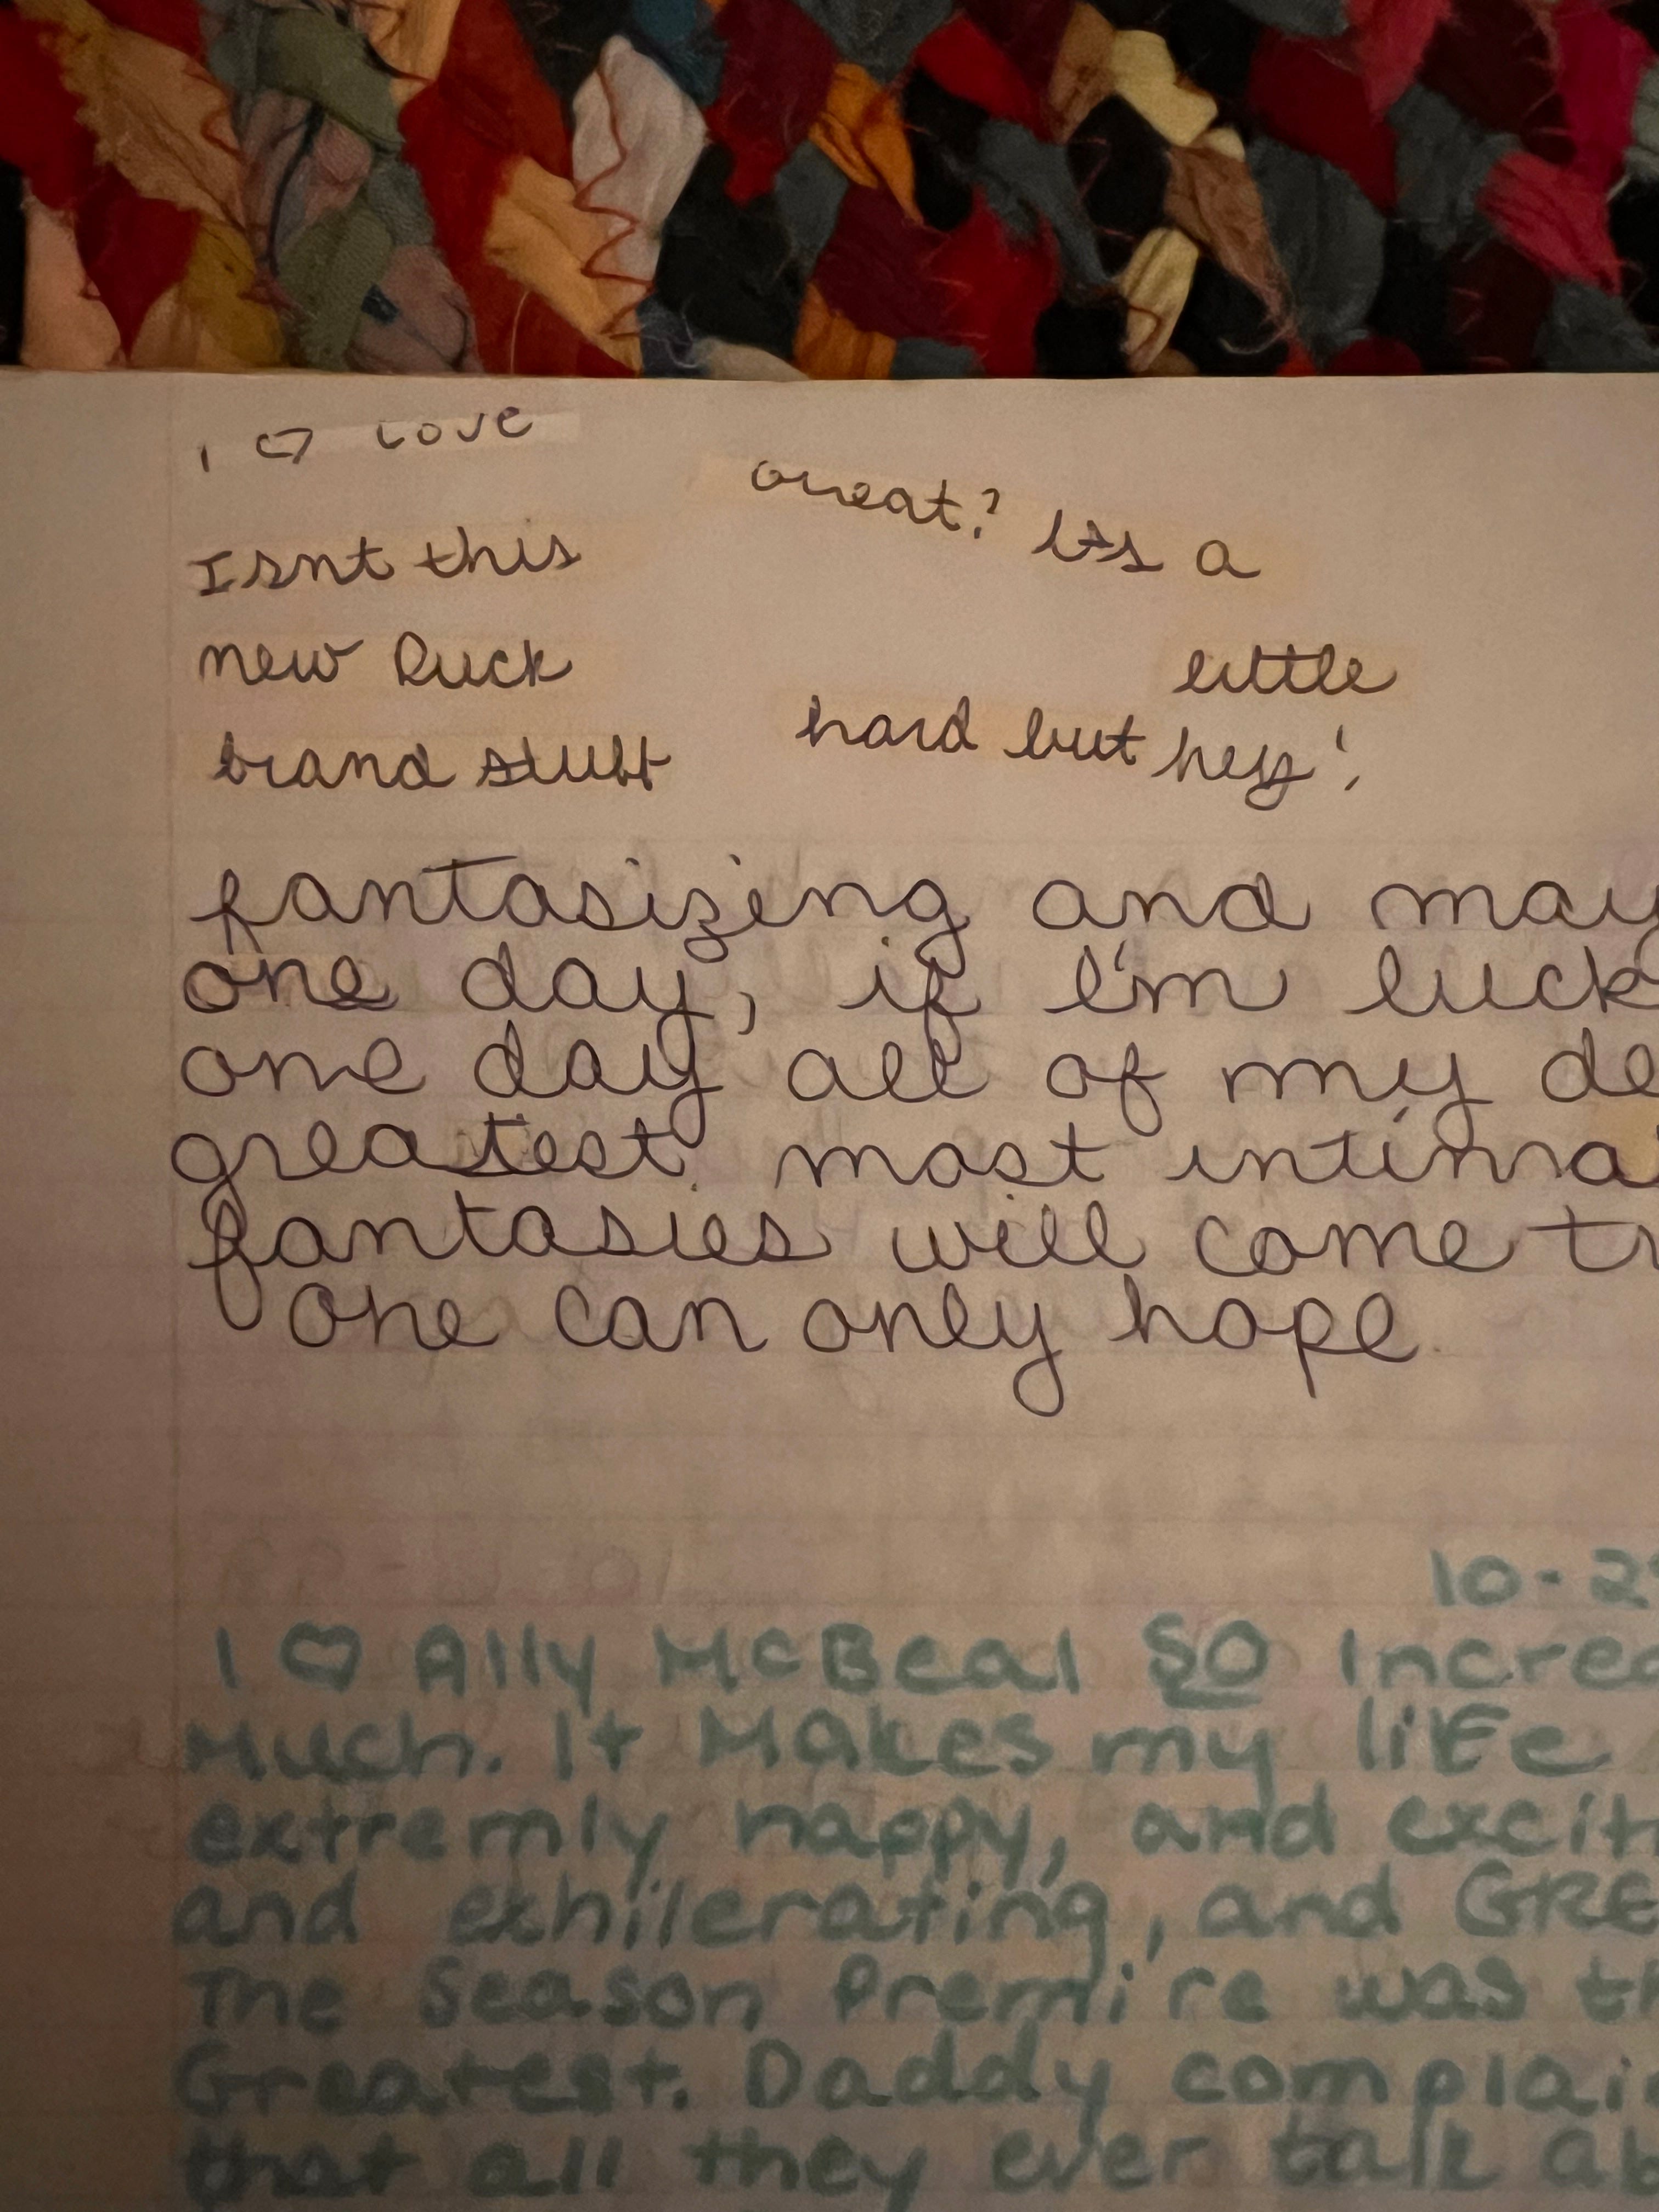 I ♡ Love
great? Its a
Isnt this
new luck
little
hard but hey!
brand stuff
fantasizing and may
one day, if I'm luck
one day all of my de
greatest most intima
fantasies will come tr
One can only hope.
10-29
I ♡ Ally McBeal SO Incred
Much. It Makes my lifE
extremly happy, and excit
and exhilerating, and GRE
The Season Premi're was th
Greatest. Daddy complai
that all they ever talk ab